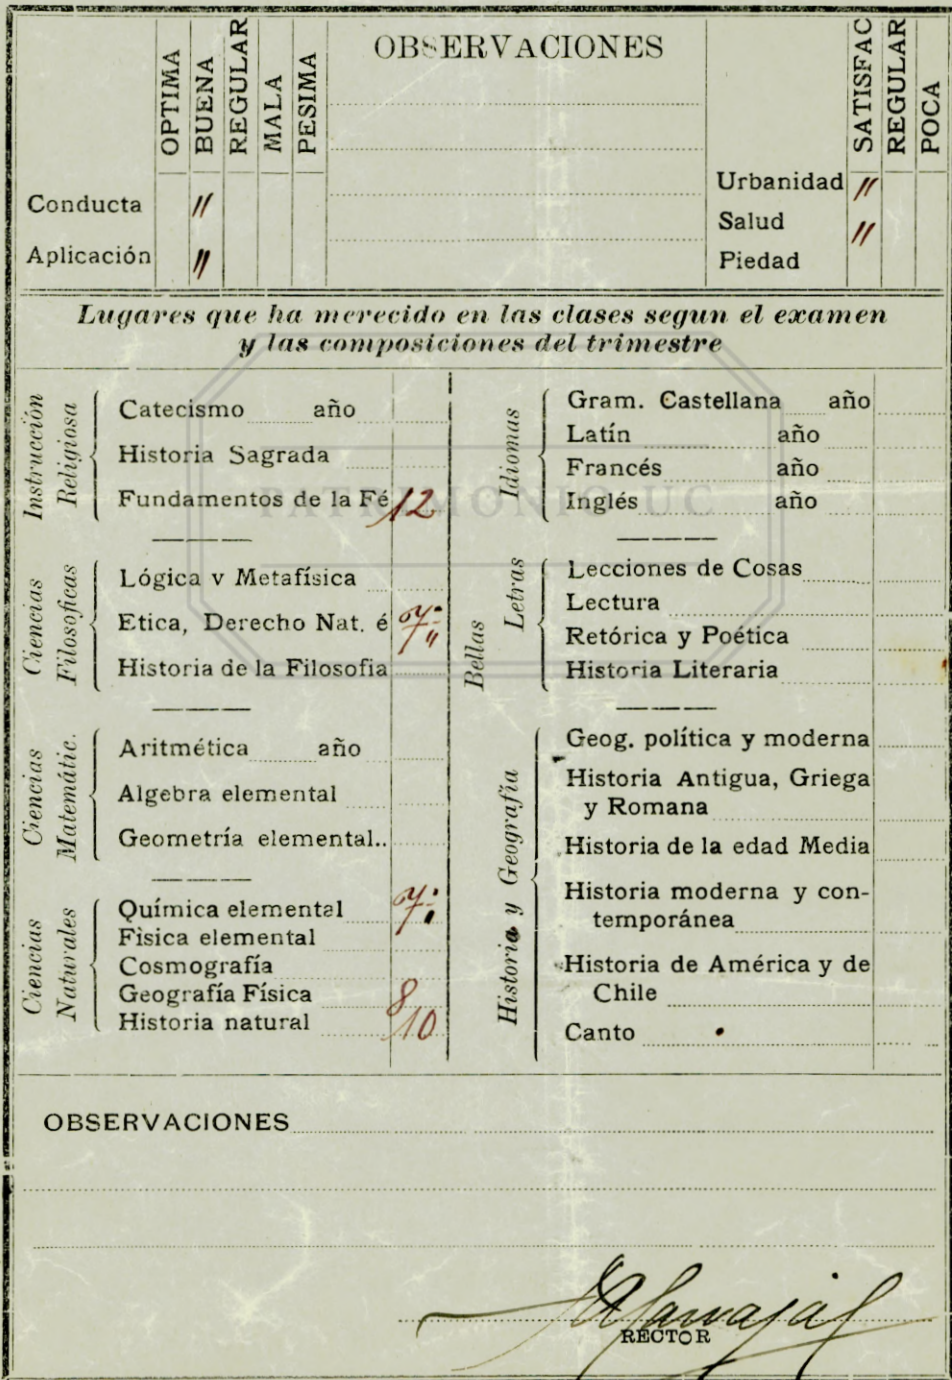 OPTIMA BUENA REGULAR MALA PESIMA
OBSERVACIONES
SATISFAC REGULAR POCA
Conducta "
Aplicación "
Urbanidad "
Salud "
Piedad
Lugares que ha merecido en las clases segun el examen
y las composiciones del trimestre
Instrucción Religiosa
Catecismo año
Historia Sagrada
Fundamentos de la Fé 12
Ciencias Filosoficas
Lógica v Metafísica
Etica, Derecho Nat. é 7
Historia de la Filosofia
Ciencias Matemátic.
Aritmética año
Algebra elemental
Geometría elemental..
Ciencias Naturales
Química elemental 7
Fisica elemental
Cosmografía
Geografía Física 8
Historia natural 10
Idiomas
Gram. Castellana año
Latín año
Francés año
Inglés año
Bellas Letras
Lecciones de Cosas
Lectura
Retórica y Poética
Historia Literaria
Historia y Geografía
Geog. política y moderna
Historia Antigua, Griega
y Romana
Historia de la edad Media
Historia moderna y con-
temporánea
Historia de América y de
Chile
Canto
PATRIMONIO UC
OBSERVACIONES
RECTOR